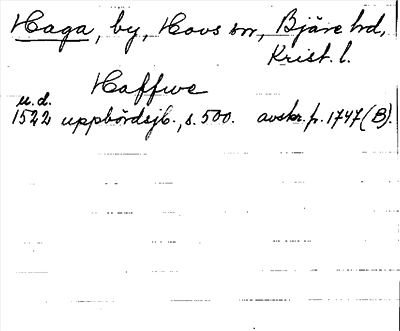 Haga, by, Hovs sn, Bjäre hd,
Krist. l.
Haffwe
u.d.
1522 uppbördsjb., s. 500. avskr. fr. 1747 (B).